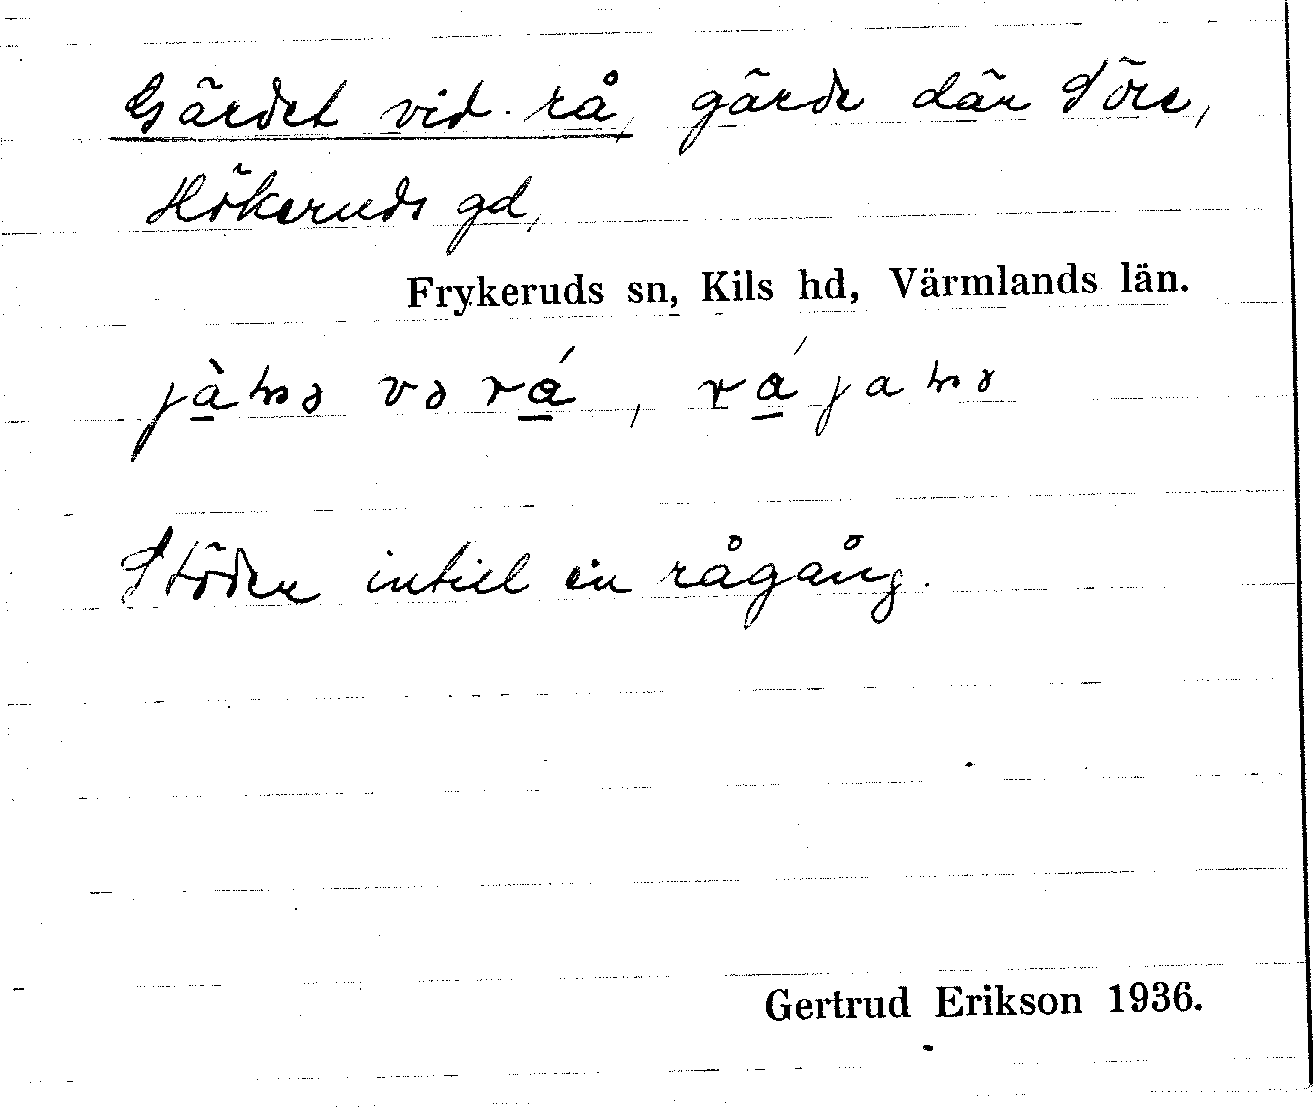 Gärdet vid rå, gärde där Söre,
Hökeruds gd,
Frykeruds sn, Kils hd, Värmlands län.
Stöder intill en rågång.
Gertrud Erikson 1936.